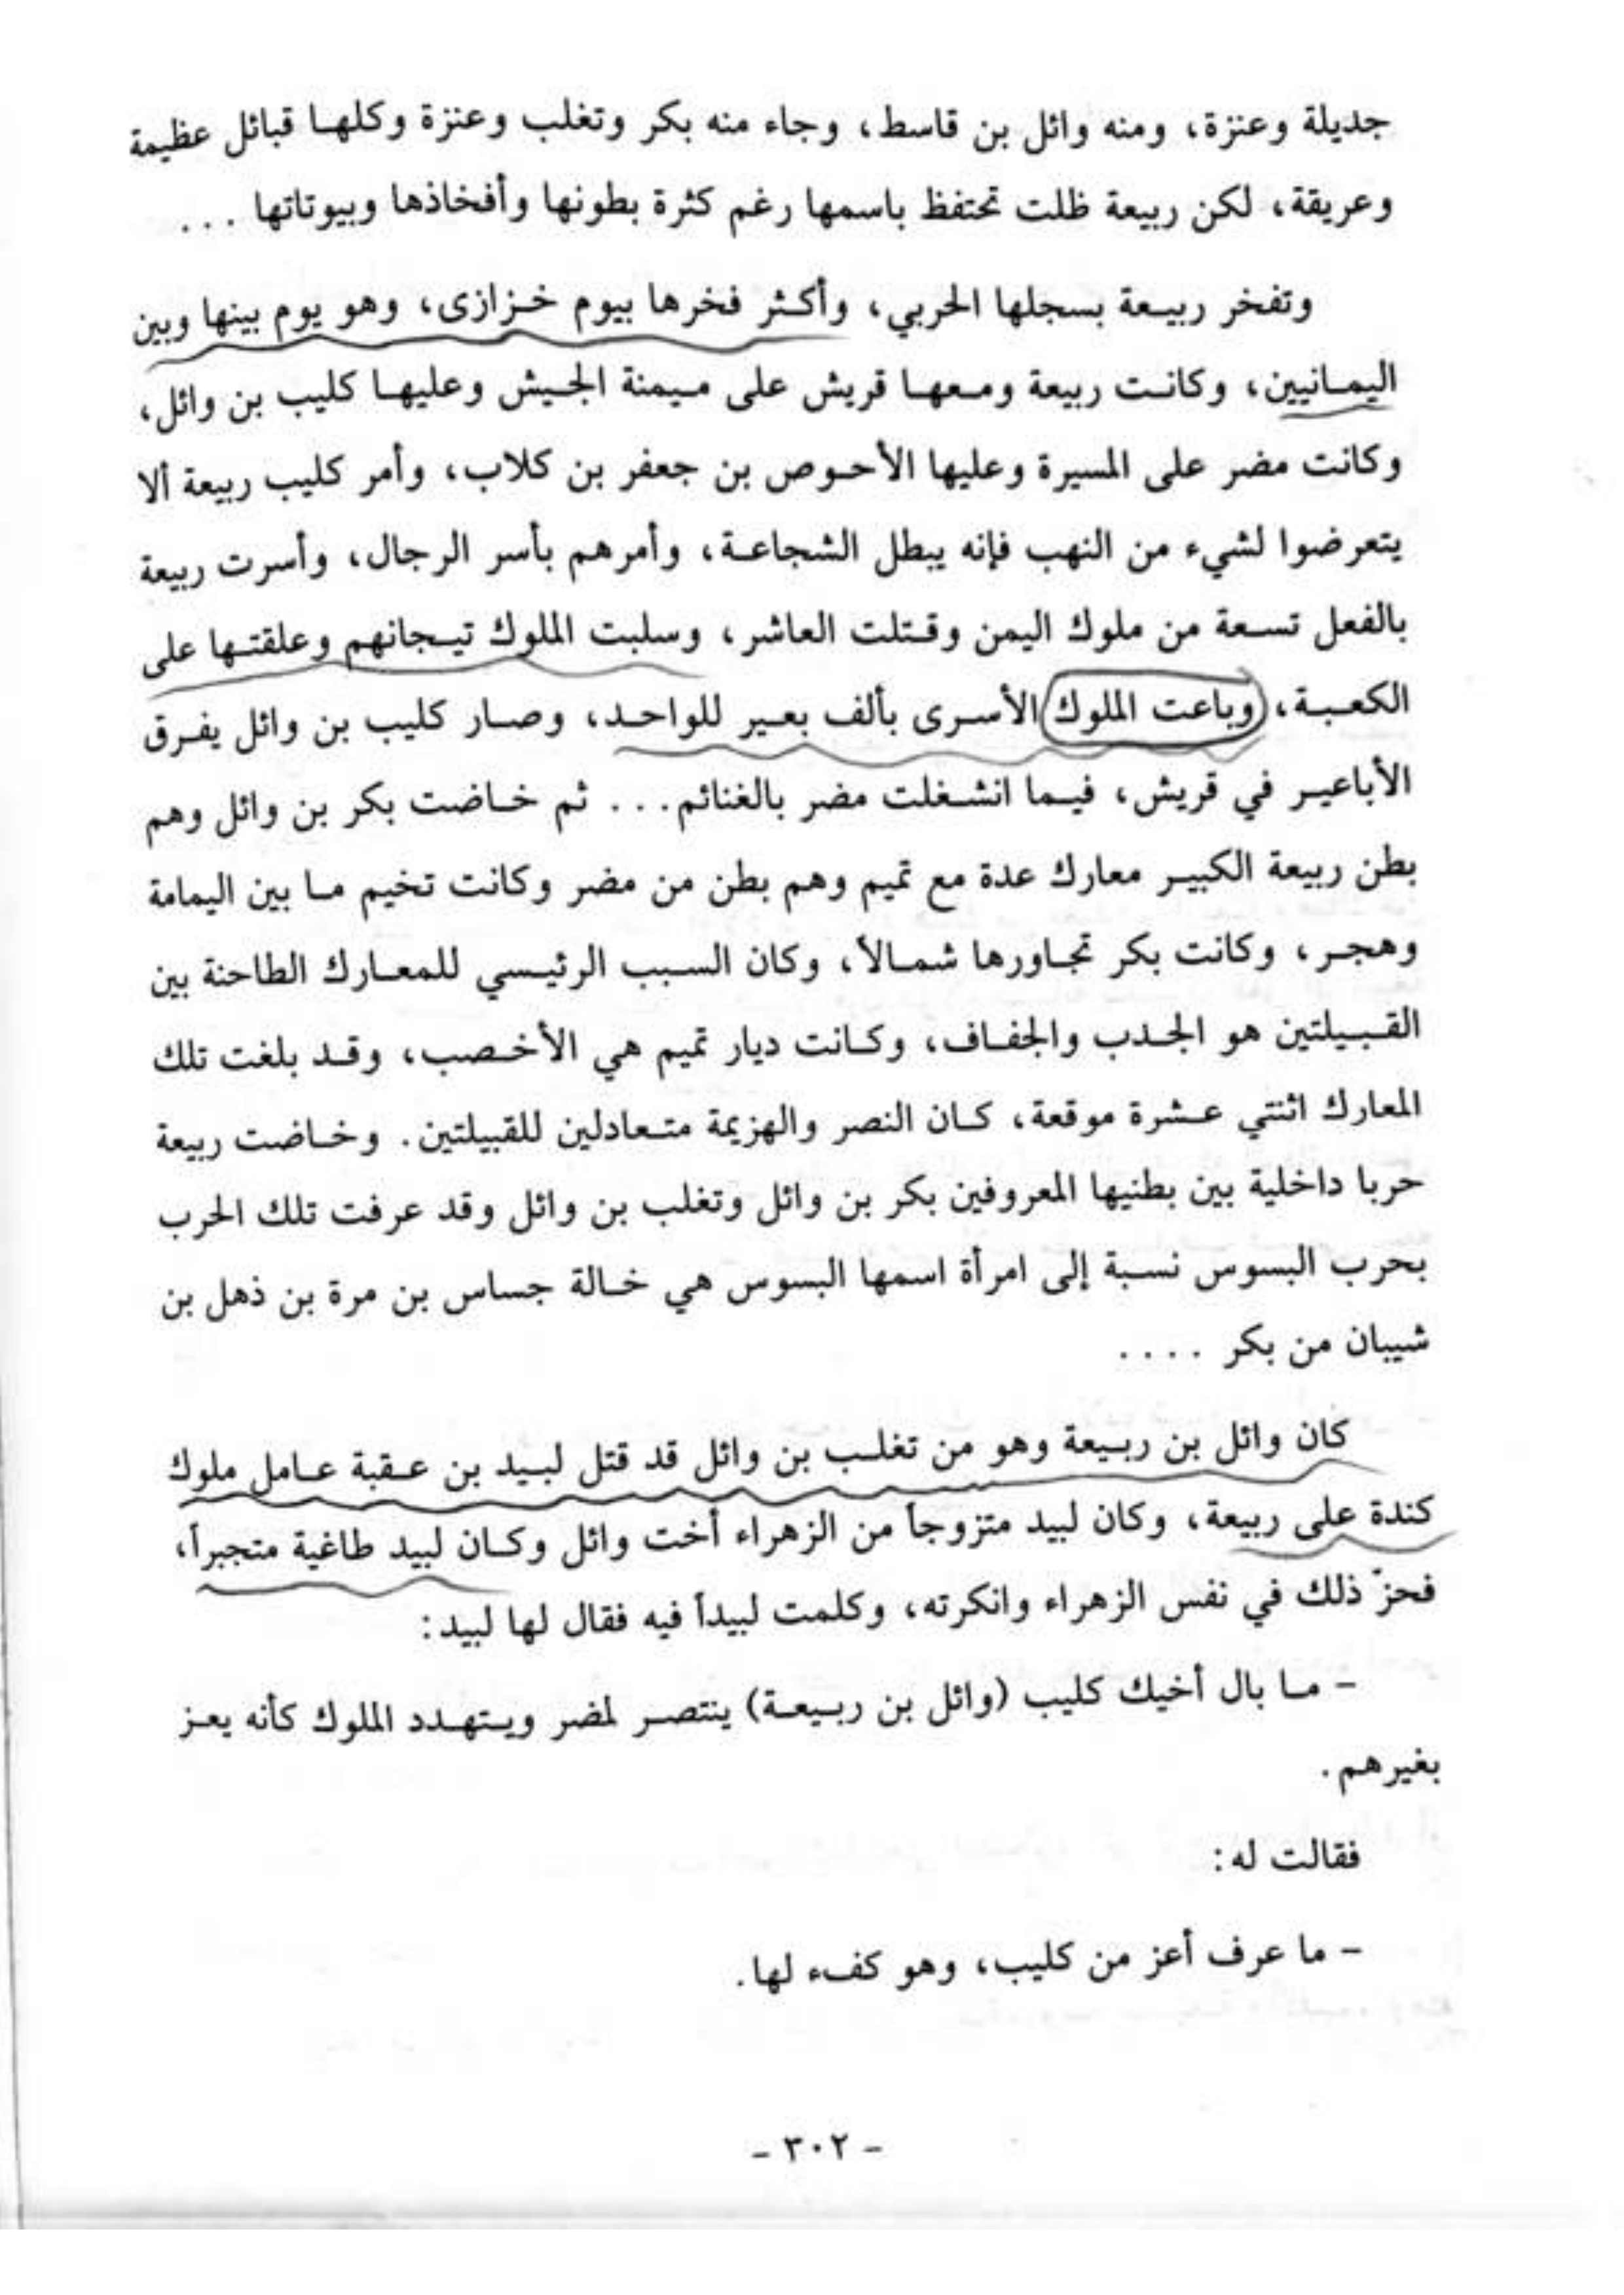 جديلة وعنزة، ومنه وائل بن قاسط، وجاء منه بكر وتغلب وعنزة وكلها قبائل عظيمة
وعريقة، لكن ربيعة ظلت تحتفظ باسمها رغم كثرة بطونها وأفخاذها وبيوتاتها ...
وتفخر ربيعة بسجلها الحربي، وأكثر فخرها بيوم خزازى، وهو يوم بينها وبين
اليمانيين، وكانت ربيعة ومعها قريش على ميمنة الجيش وعليها كليب بن وائل،
وكانت مضر على المسيرة وعليها الأحوص بن جعفر بن كلاب، وأمر كليب ربيعة ألا
يتعرضوا لشيء من النهب فإنه يبطل الشجاعة، وأمرهم بأسر الرجال، وأسرت ربيعة
بالفعل تسعة من ملوك اليمن وقتلت العاشر، وسلبت الملوك تيجانهم وعلقتها على
الكعبة، وباعت الملوك الأسرى بألف بعير للواحد، وصار كليب بن وائل يفرق
الأباعير في قريش، فيما انشغلت مضر بالغنائم... ثم خاضت بكر بن وائل وهم
بطن ربيعة الكبير معارك عدة مع تميم وهم بطن من مضر وكانت تخيم ما بين اليمامة
وهجر، وكانت بكر تجاورها شمالاً، وكان السبب الرئيسي للمعارك الطاحنة بين
القبيلتين هو الجدب والجفاف، وكانت ديار تميم هي الأخصب، وقد بلغت تلك
المعارك اثنتي عشرة موقعة، كان النصر والهزيمة متعادلين للقبيلتين. وخاضت ربيعة
حربا داخلية بين بطنيها المعروفين بكر بن وائل وتغلب بن وائل وقد عرفت تلك الحرب
بحرب البسوس نسبة إلى امرأة اسمها البسوس هي خالة جساس بن مرة بن ذهل بن
شيبان من بكر ....
كان وائل بن ربيعة وهو من تغلب بن وائل قد قتل لبيد بن عقبة عامل ملوك
كندة على ربيعة، وكان لبيد متزوجاً من الزهراء أخت وائل وكان لبيد طاغية متجبراً،
فحزّ ذلك في نفس الزهراء وانكرته، وكلمت لبيداً فيه فقال لها لبيد:
- ما بال أخيك كليب (وائل بن ربيعة) ينتصر لمضر ويتهدد الملوك كأنه يعز
بغيرهم.
فقالت له:
- ما عرف أعز من كليب، وهو كفء لها.
- ٣٠٢ -